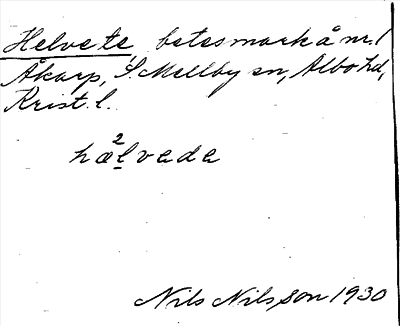 Helvete betesmark å nr. 1
Åkarp, S. Mellby sn, Albo hd,
Krist. l.
hæ²lvede
Nils Nilsson 1930